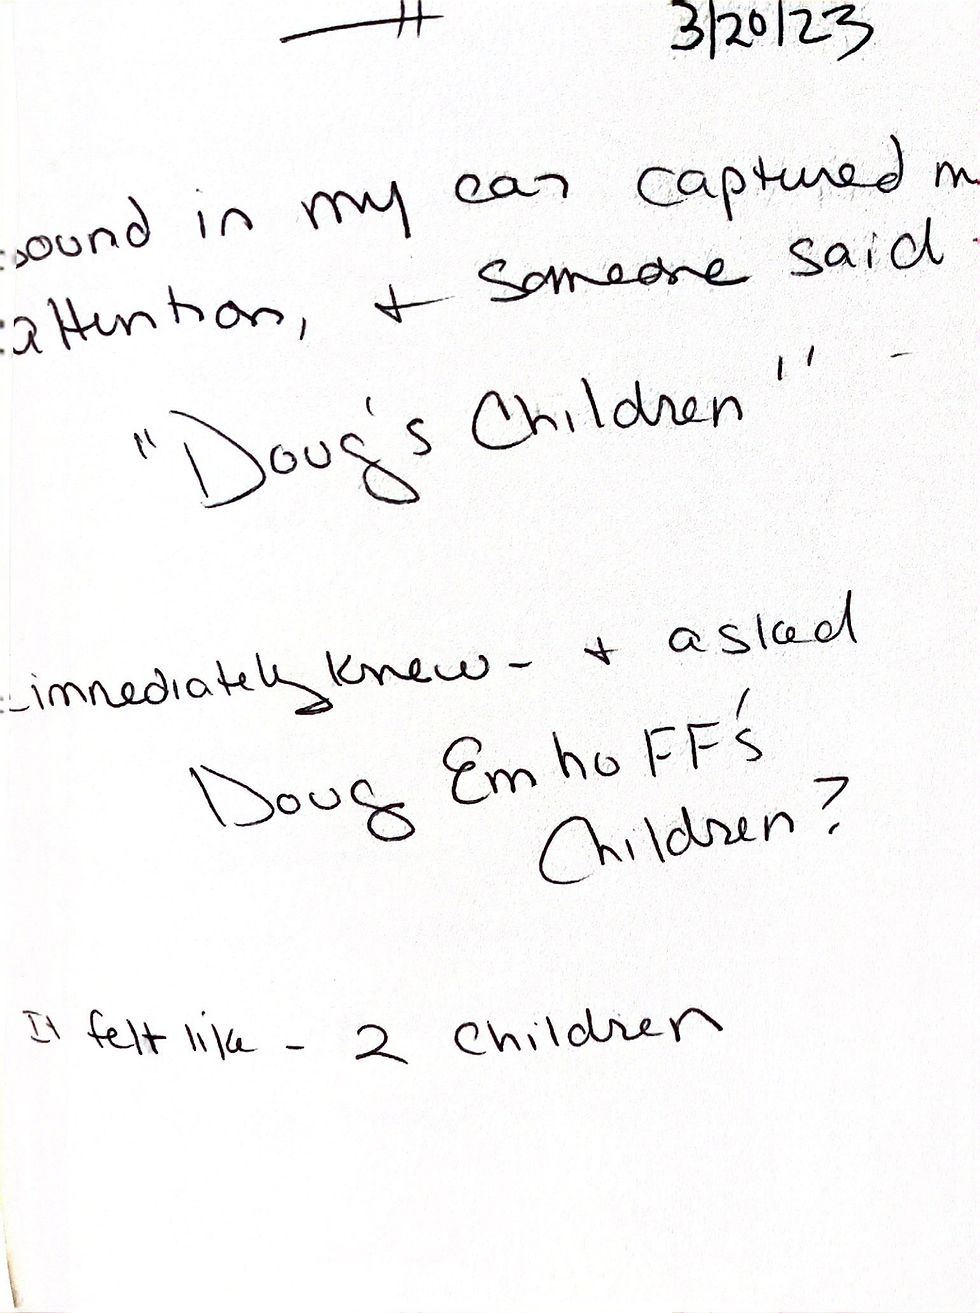 3/20/23
sound in my ear captured m
attention, + someone said
"Doug's Children" -
immediately knew - + asked
Doug EmhoFF's
Children?
It felt like - 2 children